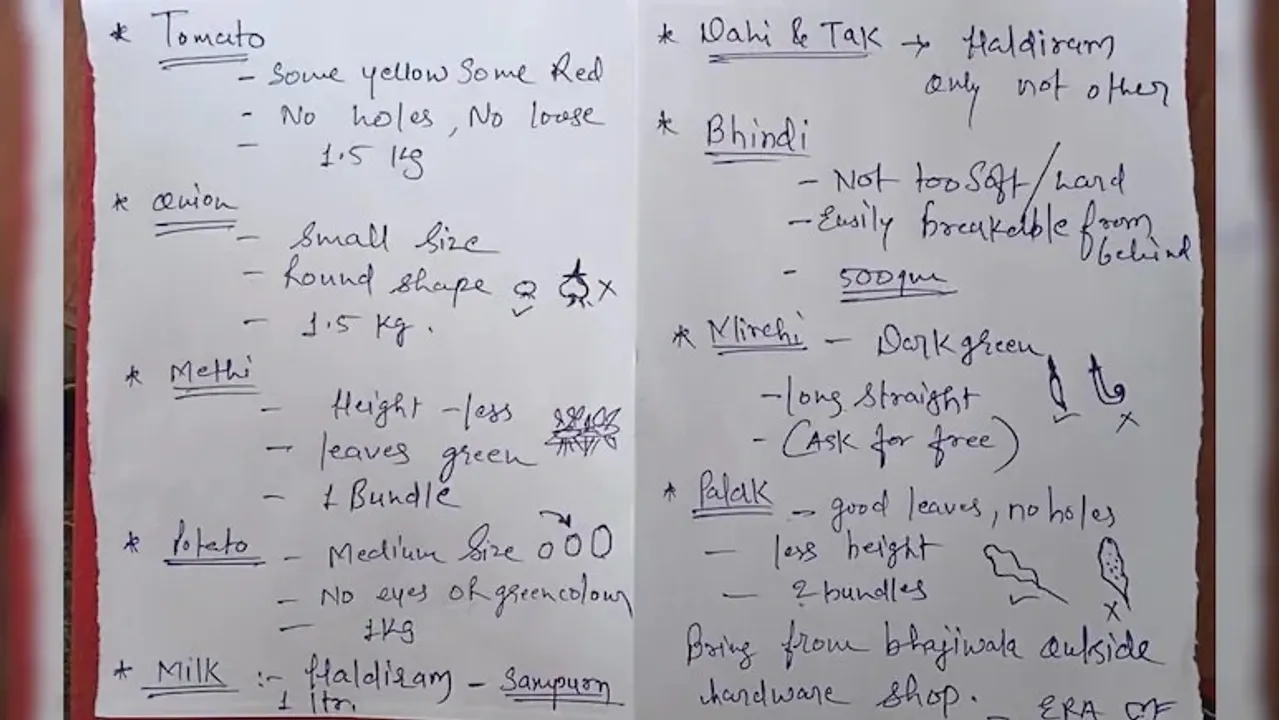 * Tomato
- Some yellow Some Red
- No holes, No loose
- 1.5 Kg
* Onion
- Small Size
- Round shape
- 1.5 Kg.
* Methi
- Height - less
- leaves green
- 1 Bundle
* Potato - Medium Size
- No eyes or green colour
- 1 Kg
* Milk :- Haldiram - Sampurn
1 ltr.
* Dahi & Tak → Haldiram
only not other
* Bhindi
- Not too Soft/hard
- Easily breakable from
behind
- 500gm
* Mirchi - Dark green
- long straight
- (Ask for free)
* Palak - good leaves, no holes
- less height
- 2 bundles
Bring from bhajiwala outside
hardware shop.
- ERA OF